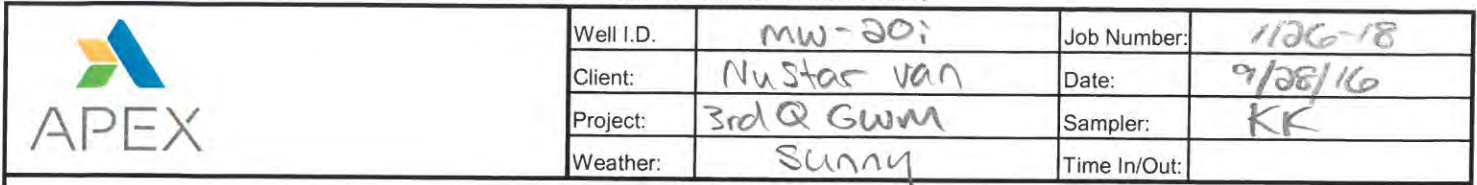 APEX
Well I.D. MW-20i Job Number: 1126-18
Client: NuStar Van Date: 9/28/16
Project: 3rd Q GWM Sampler: KK
Weather: Sunny Time In/Out: